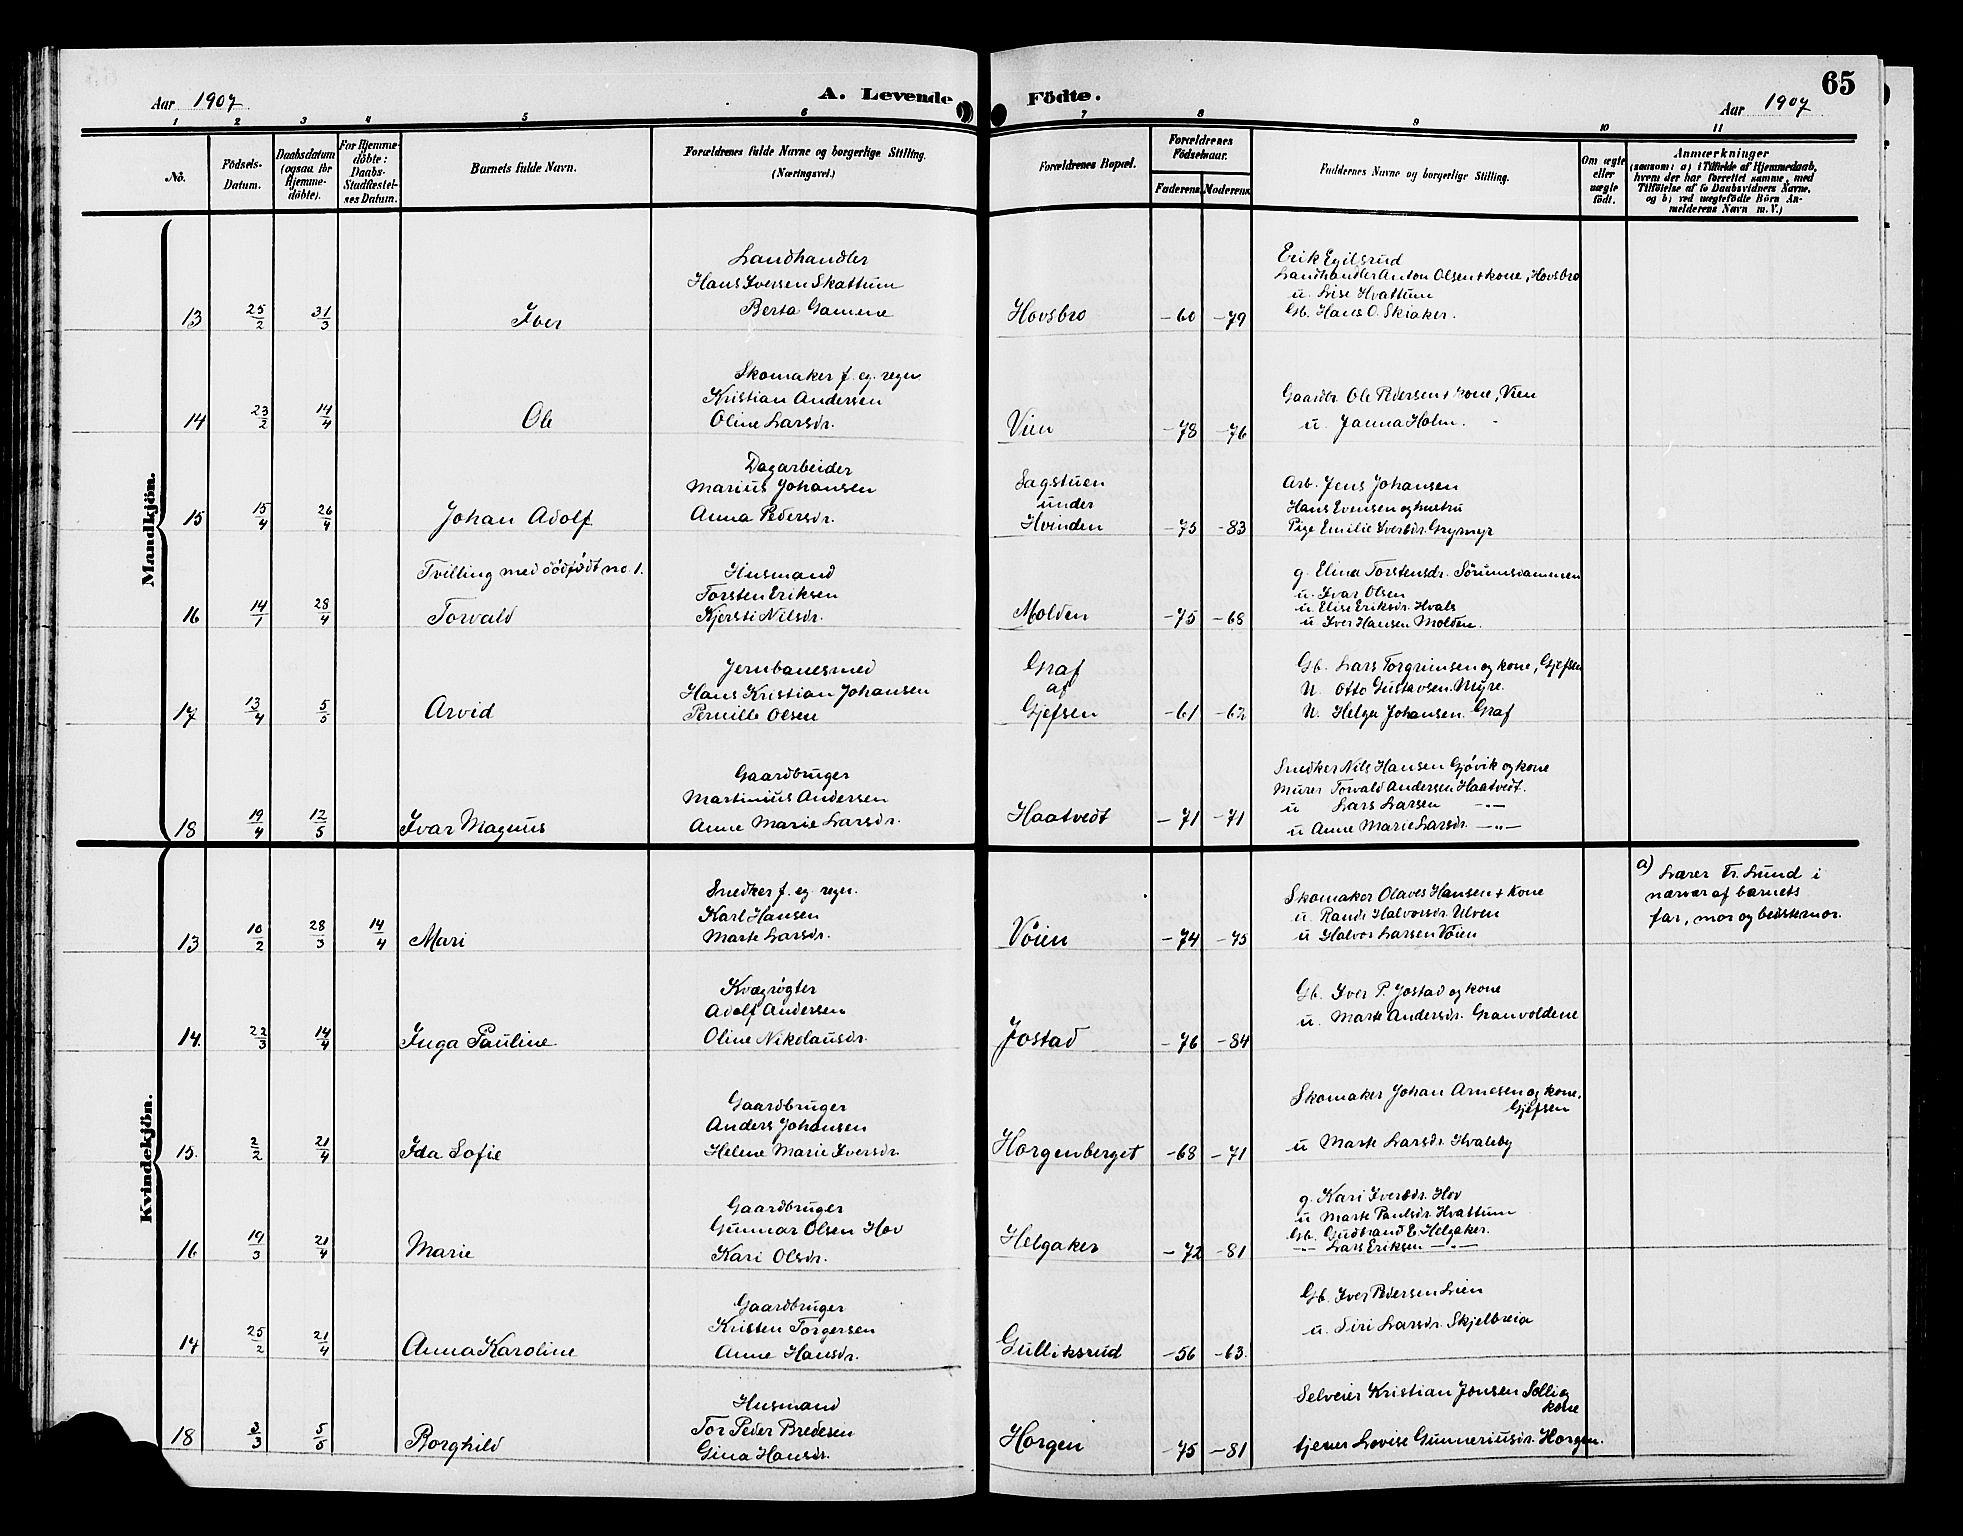 65
Aar 1907
A. Levende Födte.
Aar 1907
1 2 3 4 5 6 7 8 9 10 11
No.
Födsels-
Datum.
Daabsdatum
(ogsaa for
Hjemme-
döbte).
For Hjemme-
döbte:
Daabs-
Stadfæstel-
ses Datum.
Barnets fulde Navn.
Forældrenes fulde Navne og borgerlige Stilling.
(Næringsvei.)
Forældrenes Bopæl.
Forældrenes
Födselsaar.
Faderens. Moderens.
Faddernes Navne og borgerlige Stilling.
Om ægte
eller
uægte
födt.
Anmærkninger
(saasom: a) i Tilfælde af Hjemmedaab,
hvem der har forrettet samme, med
Tilföielse af to Daabsvidners Navne,
og b) ved uægtefödte Börn An-
melderens Navn m. V.)
Mandkjön.
Landhandler
Hans Iversen Skattum
13 25/2 31/3 Iver Berta Gamene Hovsbro -60 -79
Erik Egilsrud
Landhandler Anton Olsen + kone, Hovsbro
u. Lise Hvattum
Gb. Hans O. Skiaker.
Skomaker f. eg. regn
Kristian Andersen
14 23/2 14/4 Ole Oline Larsdr. Vien -78 -76
Gaardbr. Ole Pedersen + kone, Vien
u. Janna Holm.
Dagarbeider
Marius Johansen
15 15/4 26/4 Johan Adolf Anna Pedersdr.
Sagstuen
under
Hvinden -75 -83
Arb. Jens Johansen
Hans Evensen og hustru
Pige Emilie Iversdr. Grymyr
Tvilling med dödfødt no 1.
Husmand
Torsten Eriksen
16 14/1 28/4 Torvald Kjersti Nilsdr. Molden -75 -68
g. Elina Torstensdr. Sørumsdammen
u. Ivar Olsen
u. Elise Eriksdr. Hvals
u Iver Hansen Molden.
Jernbanesmed
Hans Kristian Johansen
17 13/4 5/5 Arvid Pernille Olsen
Graf
af
Gjefsen -61 -62
Gb. Lars Torgrimsen og kone, Gjefsen
U. Otto Gustavsen Myre.
U. Helga Johansen. Graf
Gaardbruger
Martinius Andersen
18 19/4 12/5 Ivar Magnus Anne Marie Larsdr. Haatvedt -71 -71
Snedker Nils Hansen Gjøvik og kone
Murer Torvald Andersen Haatvedt.
u Lars Larsen —„—
u Anne Marie Larsdr. —„—
Kvindekjön.
Snedker f. eg. regn.
Karl Hansen
13 10/2 28/3 14/4 Mari Marte Larsdr. Vøien -74 -75
Skomaker Olaves Hansen + kone
u. Randi Halvorsdr. Ulven
u Halvor Larsen Vøien
a) Lærer Fr. Lund i
nærvær af barnets
far, mor og bedstemor.
Kvægrøgter
Adolf Andersen
14. 22/3 14/4 Inga Pauline Oline Nikolausdr. Jostad -76 -84
Gb. Iver P. Jostad og kone
u. Marte Andersdr. Granvoldene
Gaardbruger
Anders Johansen
15. 2/2 21/4 Ida Sofie Helene Marie Iversdr. Horgenberget -68 -71
Skomaker Johan Arnesen og kone,
Gjefsen
u Marte Larsdr. Hvaleby
Gaardbruger
Gunnar Olsen Hov
16 19/3 21/4 Marie Kari Olsdr. Helgaker -72 -81
g. Kari Iversdr. Hov
u Marte Paulsdr. Hvattum
Gb. Gudbrand E. Helgaker.
—„— Lars Eriksen —„—
Gaardbruger
Kristen Torgersen
14 25/2 21/4 Anna Karoline Anne Hansdr. Gulliksrud -56 -63.
Gb. Iver Pedersen Lien
u. Siri Larsdr. Skjelbreia
Husmand
Tor Peder Bredesen
18 3/3 5/5 Borghild Gina Hansdr. Horgen -75 -81
Selveier Kristian Jensen Sollie og
kone
tjener Lovise Gunneriusdr. Horgen.